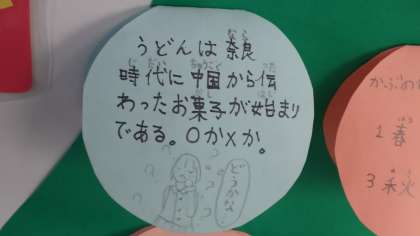 うどんは奈良
時代に中国から伝
わったお菓子が始まり
である。○か×か。
どうかな
かぶの
1春
3秋